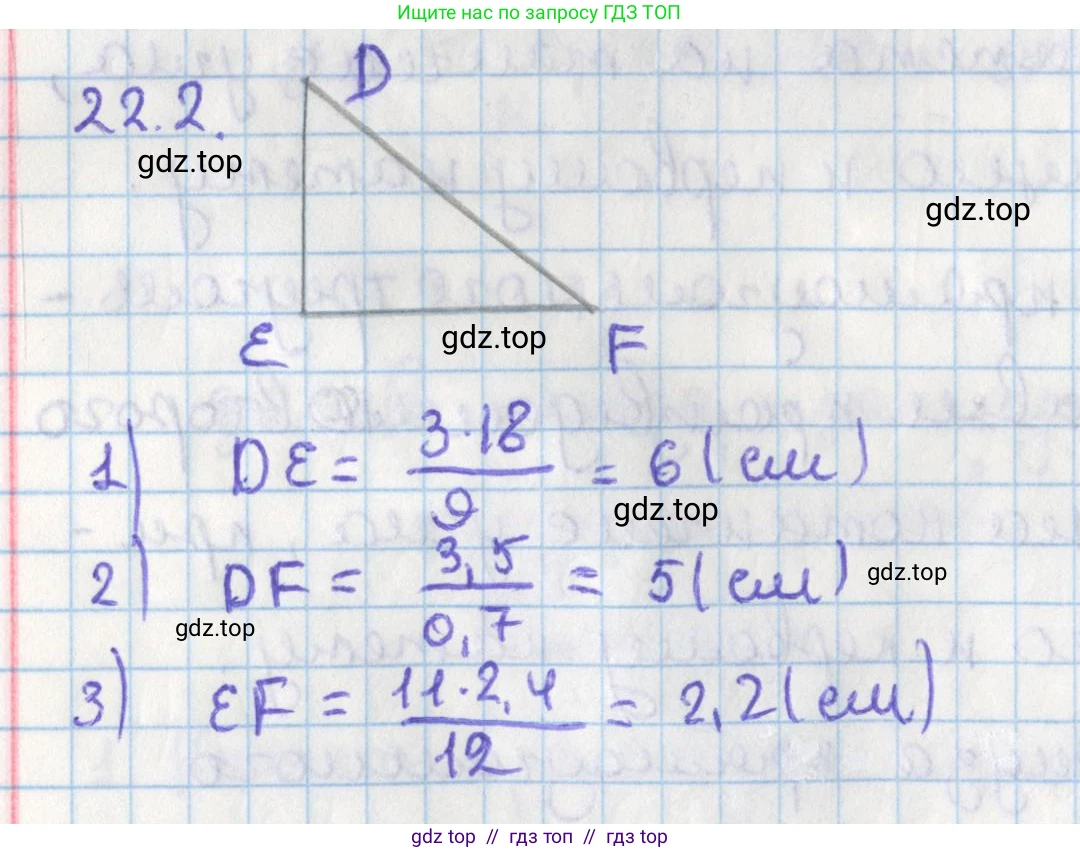 Ищите нас по запросу ГДЗ ТОП
22.2.
D
gdz.top
gdz.top
E
gdz.top
F
1) DE = 3·18 / 9 = 6 (см)
gdz.top
2) DF = 3,5 / 0,7 = 5 (см)
gdz.top
gdz.top
3) EF = 11·2,4 / 12 = 2,2 (см)
gdz top // гдз топ // gdz top